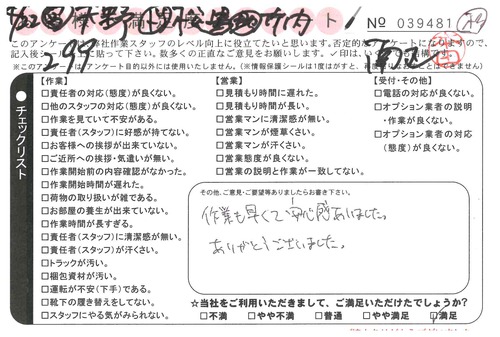 No 039481
このアンケートは弊社作業スタッフのレベル向上に役立てたいと思います。否定的なアンケートになりますので、
チェックリスト
【作業】
□責任者の対応(態度)が良くない。
□他のスタッフの対応(態度)が良くない。
□作業を見ていて不安がある。
□責任者(スタッフ)に好感が持てない。
□お客様への挨拶が出来ていない。
□ご近所への挨拶・気遣いが無い。
□作業開始前の内容確認がなかった。
□作業開始時間が遅れた。
□荷物の取り扱いが雑である。
□お部屋の養生が出来ていない。
□作業時間が長すぎる。
□責任者(スタッフ)に清潔感が無い。
□責任者(スタッフ)が汗くさい。
□トラックが汚い。
□梱包資材が汚い。
□運転が不安(下手)である。
□靴下の履き替えをしてない。
□スタッフにやる気がみられない。
【営業】
□見積もり時間に遅れた。
□見積もり時間が長い。
□営業マンに清潔感が無い。
□営業マンが煙草くさい。
□営業マンが汗くさい。
□営業態度が良くない。
□営業の説明と作業が一致してない。
【受付・その他】
□電話の対応が良くない。
□オプション業者の説明
・作業が良くない。
□オプション業者の対応
(態度)が良くない。
その他、ご意見・ご要望等ありましたらお書き下さい。
作業も早くて安心感ありました。
ありがとうございました。
☆当社をご利用いただきまして、ご満足いただけたでしょうか?
□不満 □やや不満 □普通 □やや満足 □満足